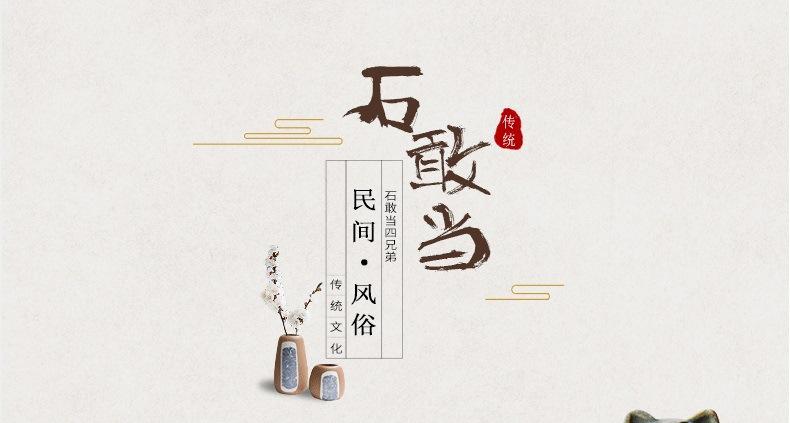 石敢当
传统
石敢当四兄弟
民间·风俗
传统文化